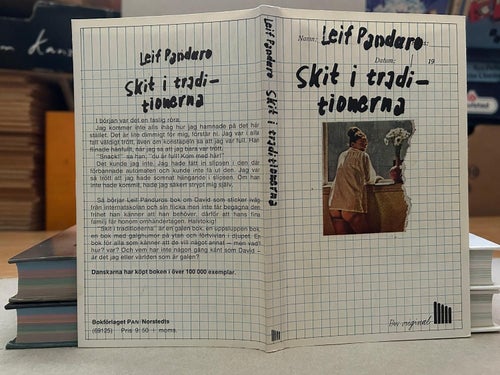 Leif Panduro
Skit i tradi-
tionerna
I början var det en faslig röra.
Jag kommer inte alls ihåg hur jag hamnade på det här
stället. Det är lite dimmigt för mig, förstår ni. Jag var i alla
fall väldigt trött, även om konstapeln sa att jag var full. Han
flinade hästfullt, när jag sa att jag bara var trött.
"Snack!" sa han, "du är full! Kom med här!"
Det kunde jag inte. Jag hade fått in slipsen i den där
förbannade automaten och kunde inte få ut den. Jag var
så trött att jag hade somnat hängande i slipsen. Om han
inte hade kommit, hade jag säkert strypt mig själv.
Så börjar Leif Panduros bok om David som sticker iväg
från internatskolan och sin flicka men inte får begagna den
frihet han känner att han behöver, därför att hans fina
familj får honom omhändertagen. Halvtokig!
"Skit i traditionerna" är en galen bok, en uppsluppen bok,
en bok med galghumor på ytan och förtvivlan i djupet. En
bok för alla som känner att de vill något annat — men vad?
hur? var? Och vem har inte någon gång känt som David –
är det jag eller världen som är galen?
Danskarna har köpt boken i över 100 000 exemplar.
Bokförlaget PAN/Norstedts
(69125) Pris 9:50 + moms.
Leif Panduro Skit i traditionerna
Namn: Leif Panduro
Datum: 19
Skit i tradi-
tionerna
Pan original